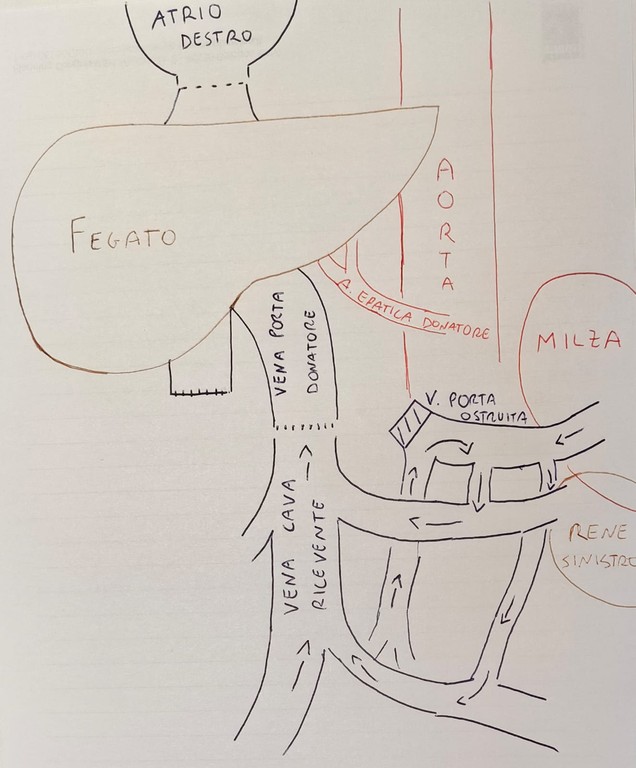 ATRIO
DESTRO
FEGATO
AORTA
A. EPATICA DONATORE
VENA PORTA
DONATORE
MILZA
V. PORTA
OSTRUITA
VENA CAVA
RICEVENTE
RENE
SINISTRO